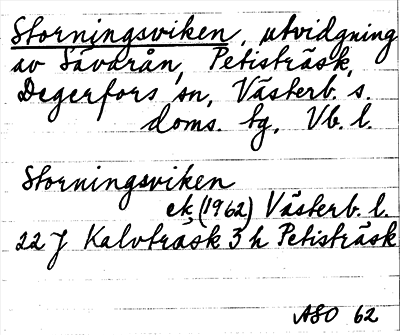 Storningsviken, utvidgning
av Sävarån, Petisträsk,
Degerfors sn, Västerb. s.
doms. tg, Vb. l.
Storningsviken
ek. (1962) Västerb. l.
22 J Kalvträsk 3 h Petisträsk
ASO 62